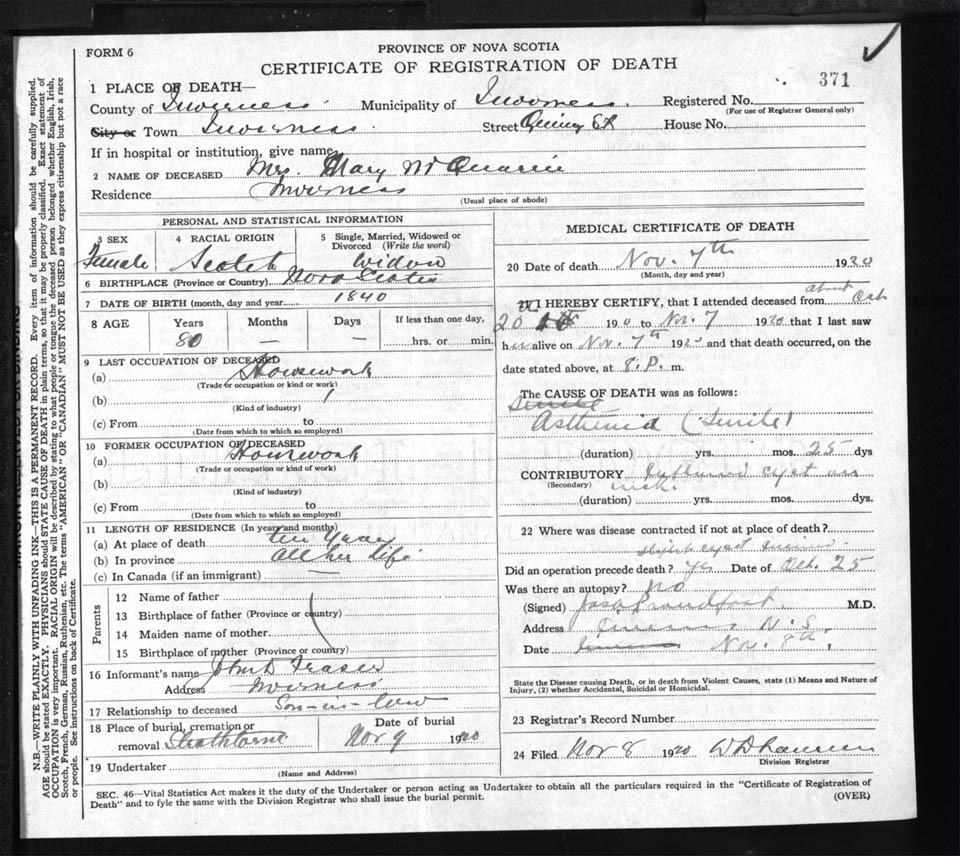 FORM 6
PROVINCE OF NOVA SCOTIA
CERTIFICATE OF REGISTRATION OF DEATH
371
1 PLACE OF DEATH—
County of Inverness Municipality of Inverness Registered No.
(For use of Registrar General only)
City or Town Inverness Street St House No.
If in hospital or institution, give name
2 NAME OF DECEASED Mrs. Mary Mc Quarrie
Residence Inverness
(Usual place of abode)
PERSONAL AND STATISTICAL INFORMATION
3 SEX 4 RACIAL ORIGIN 5 Single, Married, Widowed or Divorced (Write the word)
Female Scotch Widow
6 BIRTHPLACE (Province or Country) Nova Scotia
7 DATE OF BIRTH (month, day and year) 1840
8 AGE Years Months Days If less than one day,
80 — — hrs. or min.
9 LAST OCCUPATION OF DECEASED
(a) Housework
(Trade or occupation or kind or work)
(b)
(Kind of industry)
(c) From to
(Date from which to which so employed)
10 FORMER OCCUPATION OF DECEASED
(a) Housework
(Trade or occupation or kind of work)
(b)
(Kind of industry)
(c) From to
(Date from which to which so employed)
11 LENGTH OF RESIDENCE (In years and months)
(a) At place of death ten years
(b) In province all her life
(c) In Canada (if an immigrant) —
Parents
12 Name of father
13 Birthplace of father (Province or country)
14 Maiden name of mother
15 Birthplace of mother (Province or country)
16 Informant's name Fraser
Address Inverness
17 Relationship to deceased Son-in-law
18 Place of burial, cremation or removal Strathlorne Date of burial Nov 9 1920
19 Undertaker
(Name and Address)
MEDICAL CERTIFICATE OF DEATH
20 Date of death Nov. 7th 1920
(Month, day and year)
I HEREBY CERTIFY, that I attended deceased from about Oct
20 19 to Nov. 7 1920 that I last saw
her alive on Nov. 7th 1920 and that death occurred, on the
date stated above, at 8. P. m.
The CAUSE OF DEATH was as follows:
Senile
Asthenia (Senile)
(duration) yrs. mos. 25 dys
CONTRIBUTORY Inflamed cyst on
(Secondary) neck.
(duration) yrs. mos. dys.
22 Where was disease contracted if not at place of death?
cyst
Did an operation precede death? yes Date of Oct. 25
Was there an autopsy? no
(Signed) M.D.
Address N. S.
Date Nov. 8th,
State the Disease causing Death, or in death from Violent Causes, state (1) Means and Nature of
Injury, (2) whether Accidental, Suicidal or Homicidal.
23 Registrar's Record Number
24 Filed Nov 8 1920
Division Registrar
SEC. 46—Vital Statistics Act makes it the duty of the Undertaker or person acting as Undertaker to obtain all the particulars required in the "Certificate of Registration of
Death" and to fyle the same with the Division Registrar who shall issue the burial permit.
(OVER)
N.B.—WRITE PLAINLY WITH UNFADING INK—THIS IS A PERMANENT RECORD. Every item of information should be carefully supplied.
AGE should be stated EXACTLY. PHYSICIANS should STATE CAUSE OF DEATH in plain terms, so that it may be properly classified. Exact statement of
OCCUPATION is very important. RACIAL ORIGIN will be described by stating to what people or tongue the deceased person belonged whether English, Irish,
Scotch, French, German, Russian, Ruthenian, etc. The terms "AMERICAN" OR "CANADIAN" MUST NOT BE USED as they express citizenship but not a race
or people. See instructions on back of Certificate.